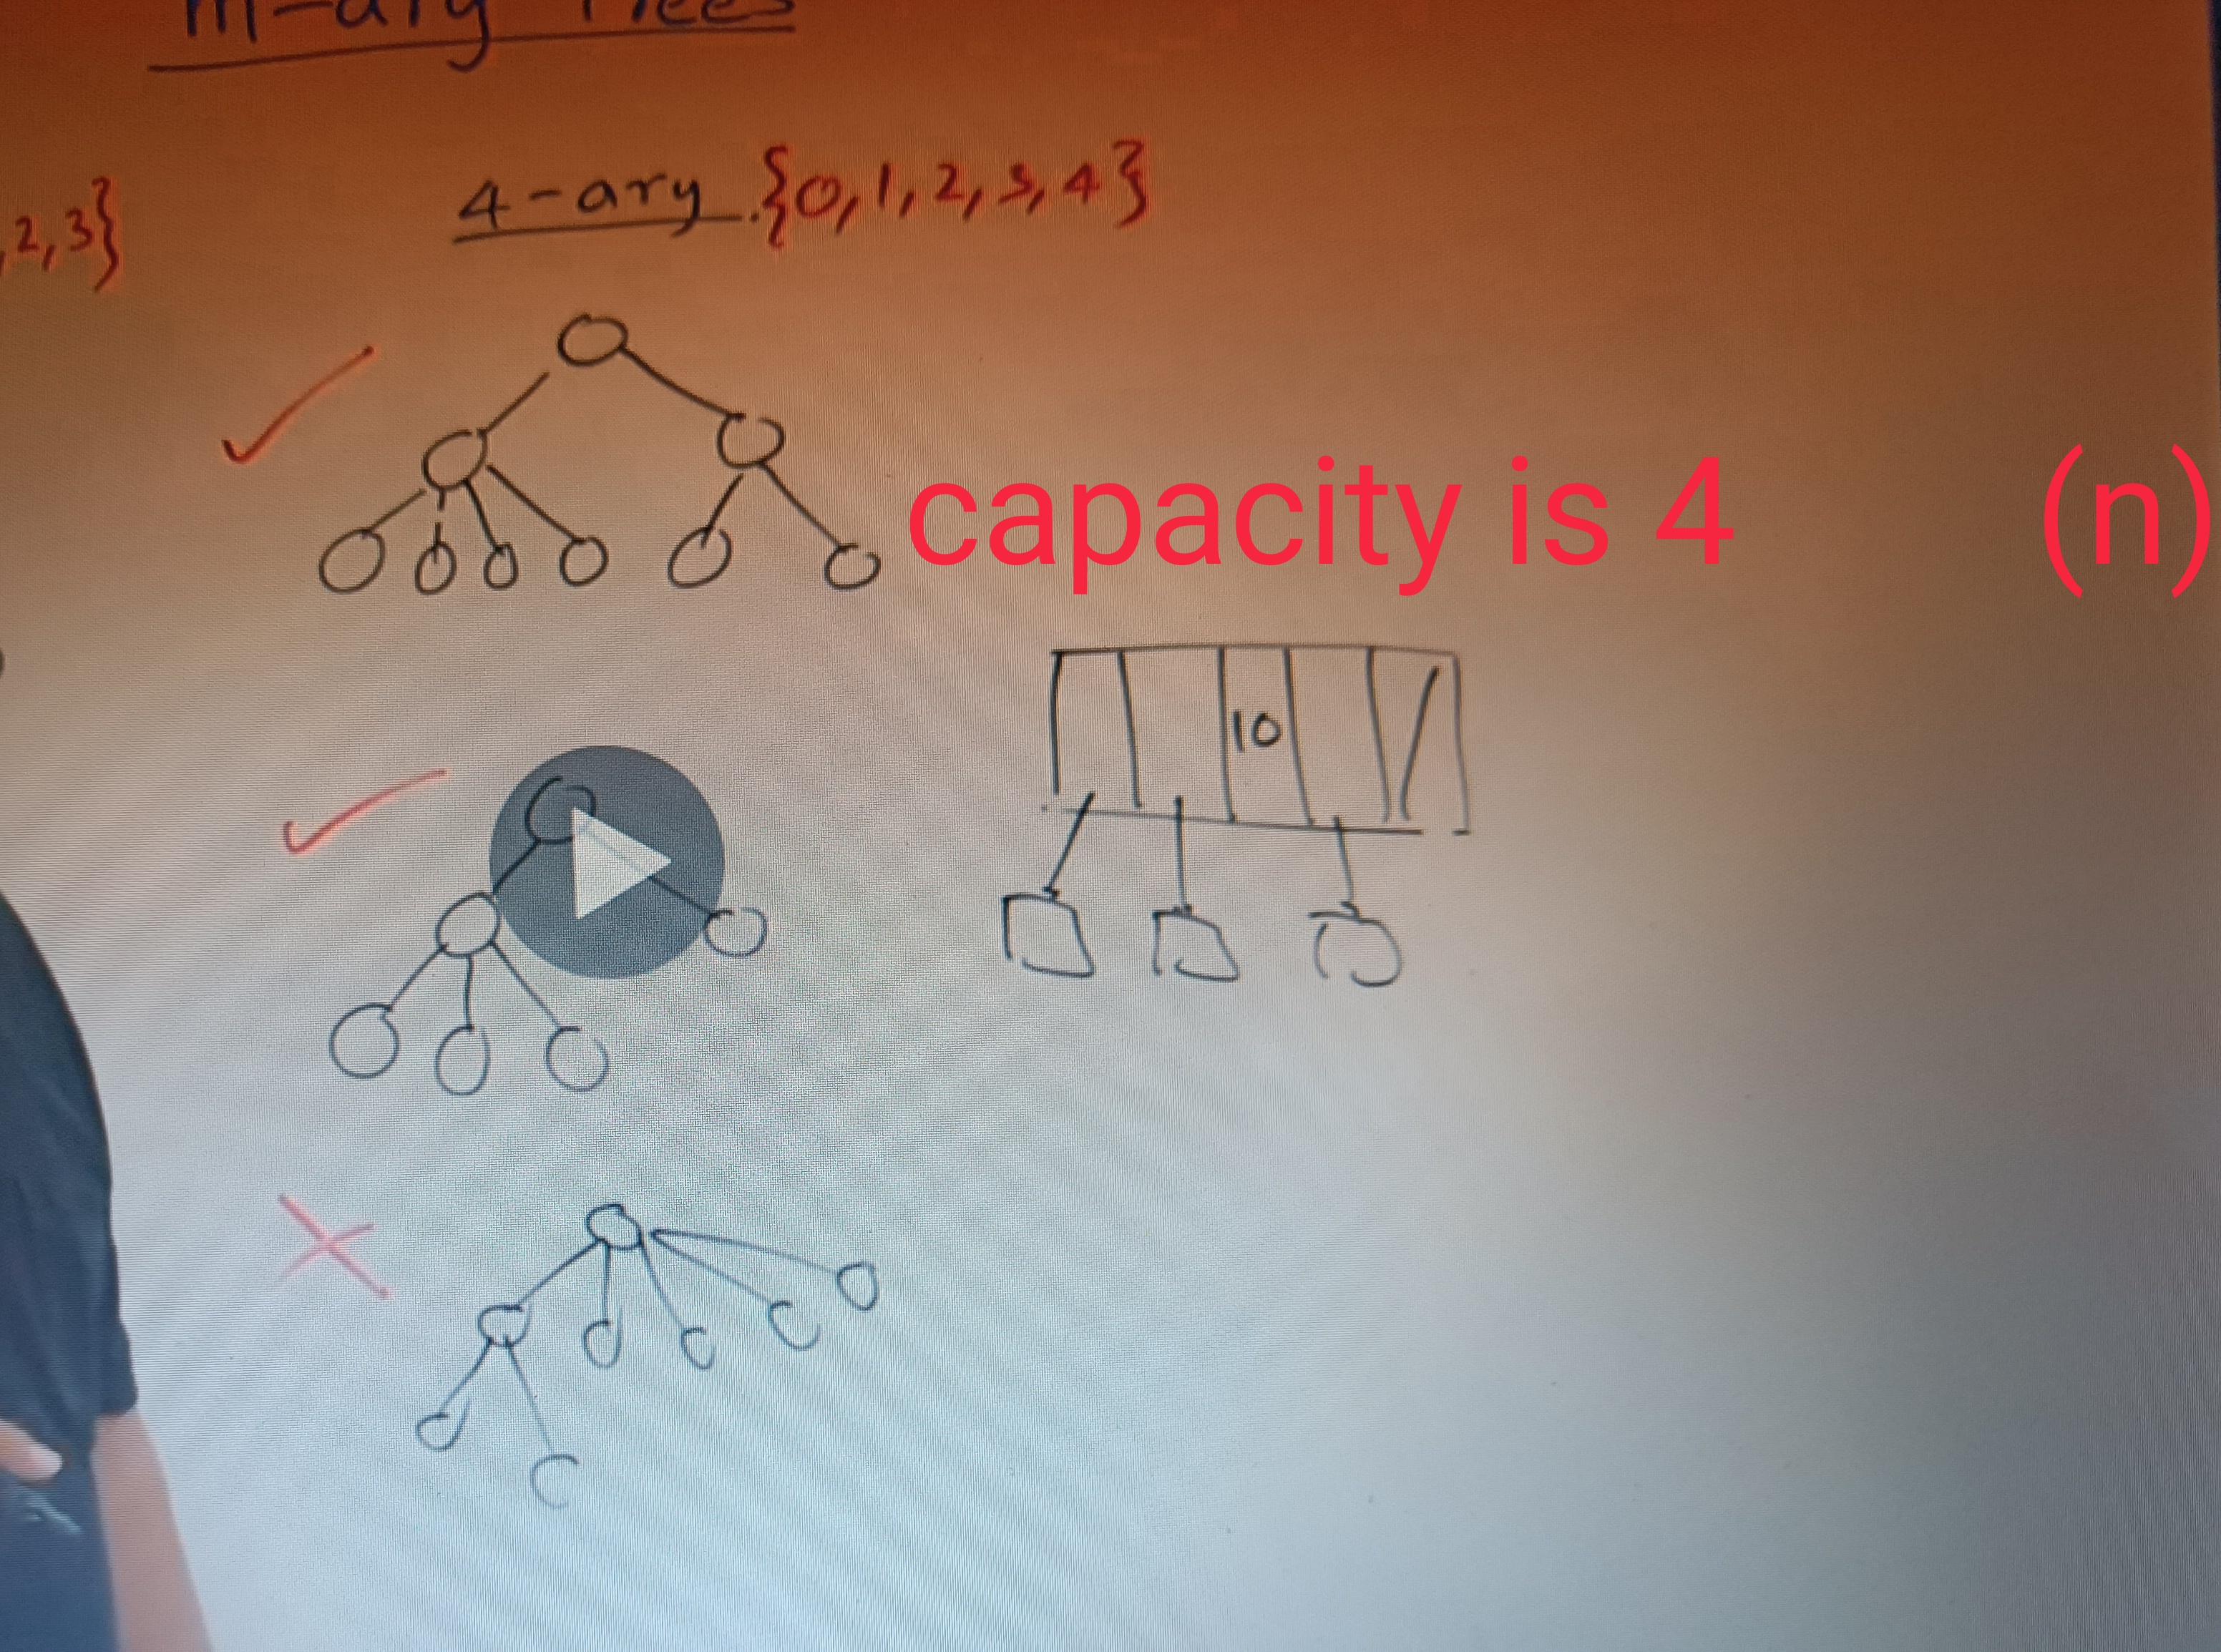 m-ary Trees
,2,3}
4-ary {0,1,2,3,4}
capacity is 4 (n)
10